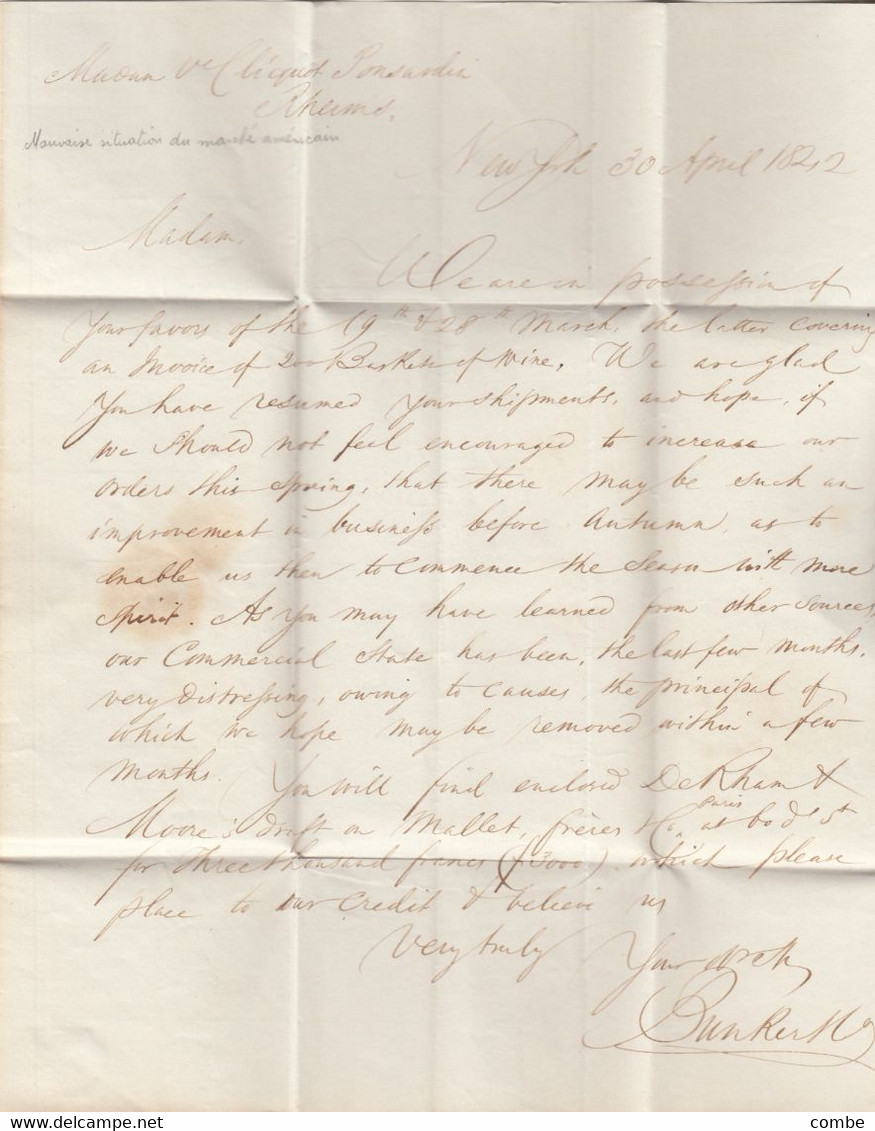 Madam Ve Clicquot Ponsardin
Rheims.
Mauvaise situation du marché américain
New York 30 April 1842
Madam,
We are in possession of
Your favors of the 19th & 28th March, the latter covering
an Invoice of 200 Baskets of Wine. We are glad
You have resumed your shipments, and hope, if
we should not feel encouraged to increase our
orders this Spring, that there may be such an
improvement in business before Autumn, as to
enable us then to commence the Season with more
spirit. As you may have learned from other sources,
our Commercial State has been, the last few months,
very distressing, owing to causes, the principal of
which we hope may be removed within a few
months. You will find enclosed DeRham &
Moore's draft on Mallet, frères & Co Paris at 60 d/st
for Three thousand francs (f 3000) which please
place to our credit & believe us
Very truly
Your
Bunker & Co
combe